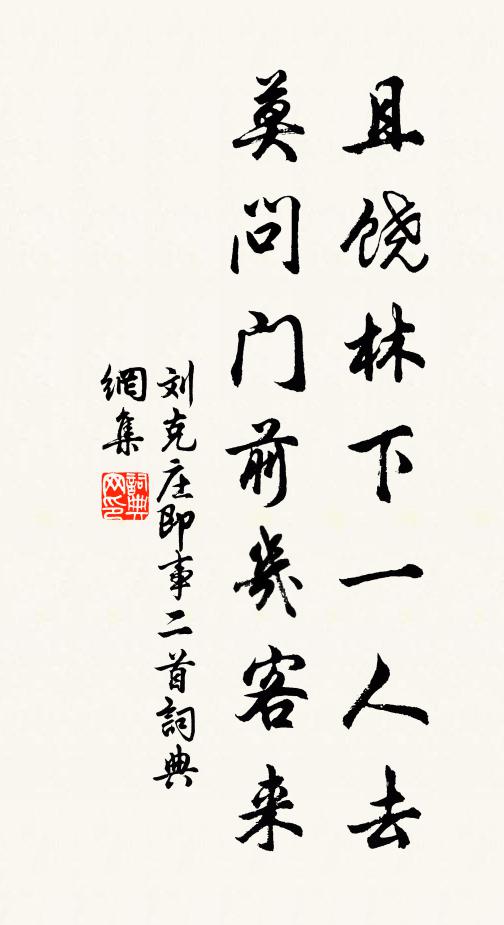 且饶林下一人去
莫问门前幾客来
刘克庄即事二首詞典
網集
詞典
网印